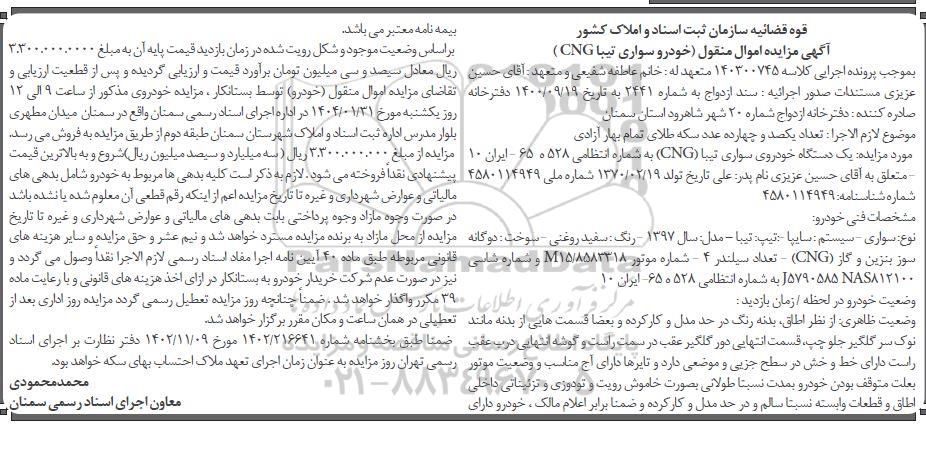 قوه قضائیه سازمان ثبت اسناد و املاک کشور
آگهی مزایده اموال منقول (خودرو سواری تیبا CNG )
بموجب پرونده اجرایی کلاسه ۱۴۰۳۰۰۷۴۵ متعهد له : خانم عاطفه شفیعی و متعهد : آقای حسین
عزیزی مستندات صدور اجرائیه : سند ازدواج به شماره ۲۴۴۱ به تاریخ ۱۴۰۰/۰۹/۱۹ دفترخانه
صادره کننده : دفترخانه ازدواج شماره ۲۰ شهر شاهرود استان سمنان
موضوع لازم الاجرا : تعداد یکصد و چهارده عدد سکه طلای تمام بهار آزادی
مورد مزایده: یک دستگاه خودروی سواری تیبا (CNG) به شماره انتظامی ۵۲۸ ه ۶۵ - ایران ۱۰
- متعلق به آقای حسین عزیزی نام پدر: علی تاریخ تولد ۱۳۷۰/۰۲/۱۹ شماره ملی ۴۵۸۰۱۱۴۹۴۹
شماره شناسنامه: ۴۵۸۰۱۱۴۹۴۹
مشخصات فنی خودرو:
نوع: سواری – سیستم : سایپا -:تیپ: تیبا – مدل: سال ۱۳۹۷ - رنگ : سفید روغنی – سوخت : دوگانه
سوز بنزین و گاز (CNG) – تعداد سیلندر ۴ - شماره موتور M۱۵/۸۵۸۳۳۱۸ و شماره شاسی
J۵۷۹۰۵۸۵ NAS۸۱۲۱۰۰ به شماره انتظامی ۵۲۸ ه ۶۵- ایران ۱۰
وضعیت خودرو در لحظه / زمان بازدید :
وضعیت ظاهری: از نظر اطاق، بدنه رنگ در حد مدل و کارکرده و بعضا قسمت هایی از بدنه مانند
نوک سر گلگیر جلو چپ، قسمت انتهایی دور گلگیر عقب در سمت راست و گوشه انتهایی درب عقب
راست دارای خط و خش در سطح جزیی و موضعی دارد و تایرها دارای آج مناسب و وضعیت موتور
بعلت متوقف بودن خودرو بمدت نسبتا طولانی بصورت خاموش رویت و تودوزی و تزئیناتی داخلی
اطاق و قطعات وابسته نسبتا سالم و در حد مدل و کارکرده و ضمنا برابر اعلام مالک ، خودرو دارای
بیمه نامه معتبر می باشد.
براساس وضعیت موجود و شکل رویت شده در زمان بازدید قیمت پایه آن به مبلغ ۳.۳۰۰.۰۰۰.۰۰۰۰
ریال معادل سیصد و سی میلیون تومان برآورد قیمت و ارزیابی گردیده و پس از قطعیت ارزیابی و
تقاضای مزایده اموال منقول (خودرو) توسط بستانکار ، مزایده خودروی مذکور از ساعت ۹ الی ۱۲
روز یکشنبه مورخ ۱۴۰۴/۰۱/۳۱ در اداره اجرای اسناد رسمی سمنان واقع در سمنان میدان مطهری
بلوار مدرس اداره ثبت اسناد و املاک شهرستان سمنان طبقه دوم از طریق مزایده به فروش می رسد.
مزایده از مبلغ ۳.۳۰۰.۰۰۰.۰۰۰ ریال ( سه میلیارد و سیصد میلیون ریال) شروع و به بالاترین قیمت
پیشنهادی نقداً فروخته می شود . لازم به ذکر است کلیه بدهی ها مربوط به خودرو شامل بدهی های
مالیاتی و عوارض شهرداری و غیره تا تاریخ مزایده اعم از اینکه رقم قطعی آن معلوم شده یا نشده باشد
در صورت وجوه مازاد وجوه پرداختی بابت بدهی های مالیاتی و عوارض شهرداری و غیره تا تاریخ
مزایده از محل مازاد به برنده مزایده مسترد خواهد شد و نیم عشر و حق مزایده و سایر هزینه های
قانونی مربوطه طبق ماده ۴۰ آیین نامه اجرا مفاد اسناد رسمی لازم الاجرا نقداً وصول می گردد و
نیز در صورت عدم شرکت خریدار خودرو به بستانکار در ازای اخذ هزینه های قانونی و با رعایت ماده
۳۹ مکرر واگذار خواهد شد . ضمناً چنانچه روز مزایده تعطیل رسمی گردد مزایده روز اداری بعد از
تعطیلی در همان ساعت و مکان مقرر برگزار خواهد شد.
ضمنا طبق بخشنامه شماره ۱۴۰۲/۲۱۶۶۴۱ مورخ ۱۴۰۲/۱۱/۰۹ دفتر نظارت بر اجرای اسناد
رسمی تهران روز مزایده به عنوان زمان اجرای تعهد ملاک احتساب بهای سکه خواهد بود.
محمد محمودی
معاون اجرای اسناد رسمی سمنان
ParsNamadData
۰۲۱-۸۸۳۴۹۶۷۰-۵